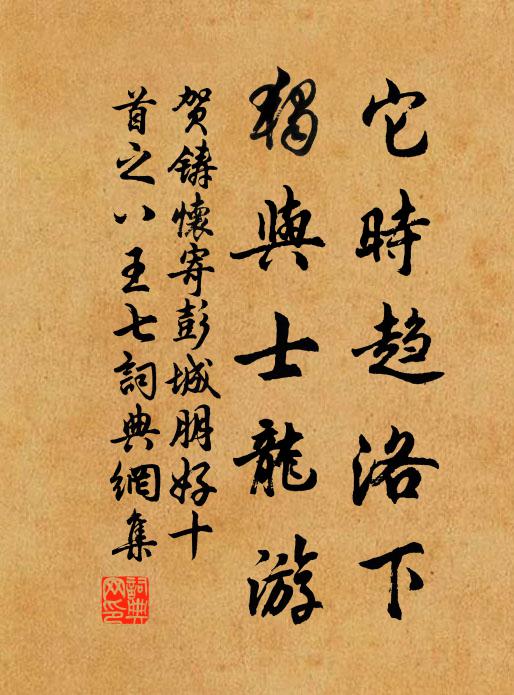 它時趨洛下
獨與士龍游
賀鑄懷寄彭城朋好十
首之八王七詞典網集
詞典網印